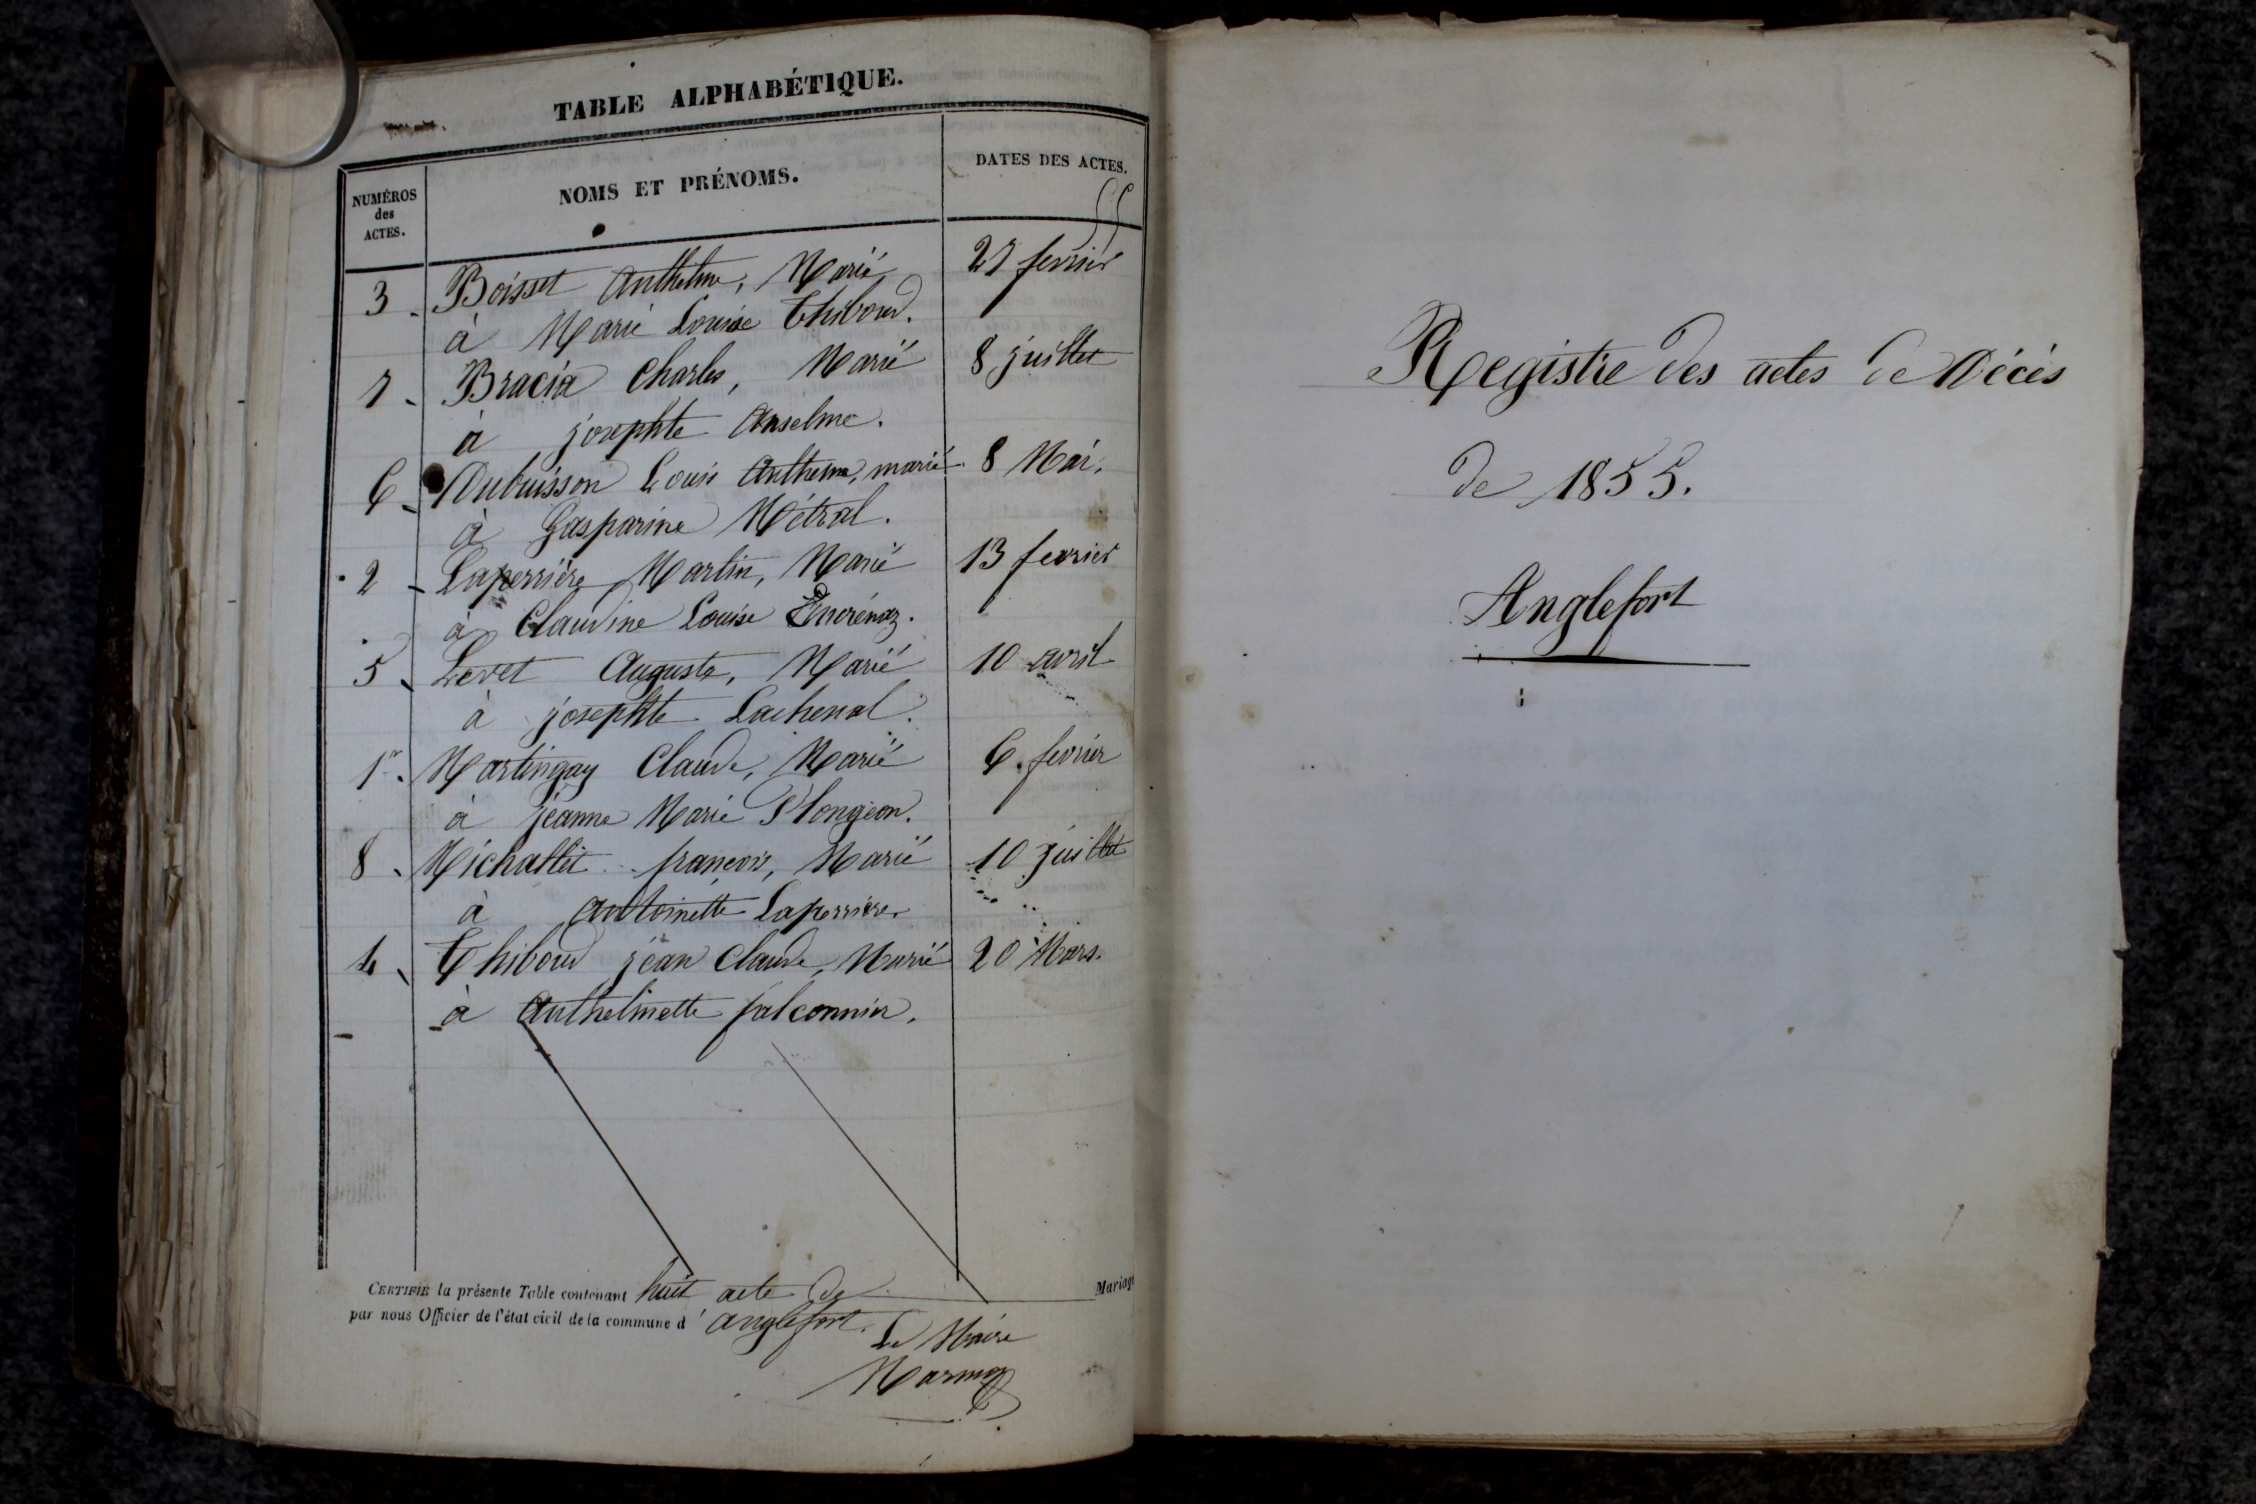 TABLE ALPHABÉTIQUE.
NUMÉROS
des
ACTES.
NOMS ET PRÉNOMS.
DATES DES ACTES.
55
3 - Boisset Anthelme, Marié 27 fevrier
à Marie Louise Thiboud.
7 - Bracia Charles, Marié 8 juillet
à josephte Anselme.
6 - Dubuisson Louis Anthelme, marié 8 Mai.
à Gasparine Métral.
2 - Laperrière Martin, Marié 13 fevrier
à Claudine Louise
5 - Levet Auguste, Marié 10 avril
à josephte Lachenal.
1er - Martingay Claude, Marié 6. fevrier
à jeanne Marie Plongeon.
8 - Michallet françois, Marié 10 juillet
à antoinette Laperriere.
4 - Thiboud jean Claude, Marié 20 Mars.
à Anthelmette falconnier.
CERTIFIÉ la présente Table contenant huit acte de Mariage
par nous Officier de l'état civil de la commune d'anglefort.
Le Maire
Registre des actes de Décès
de 1855.
Anglefort